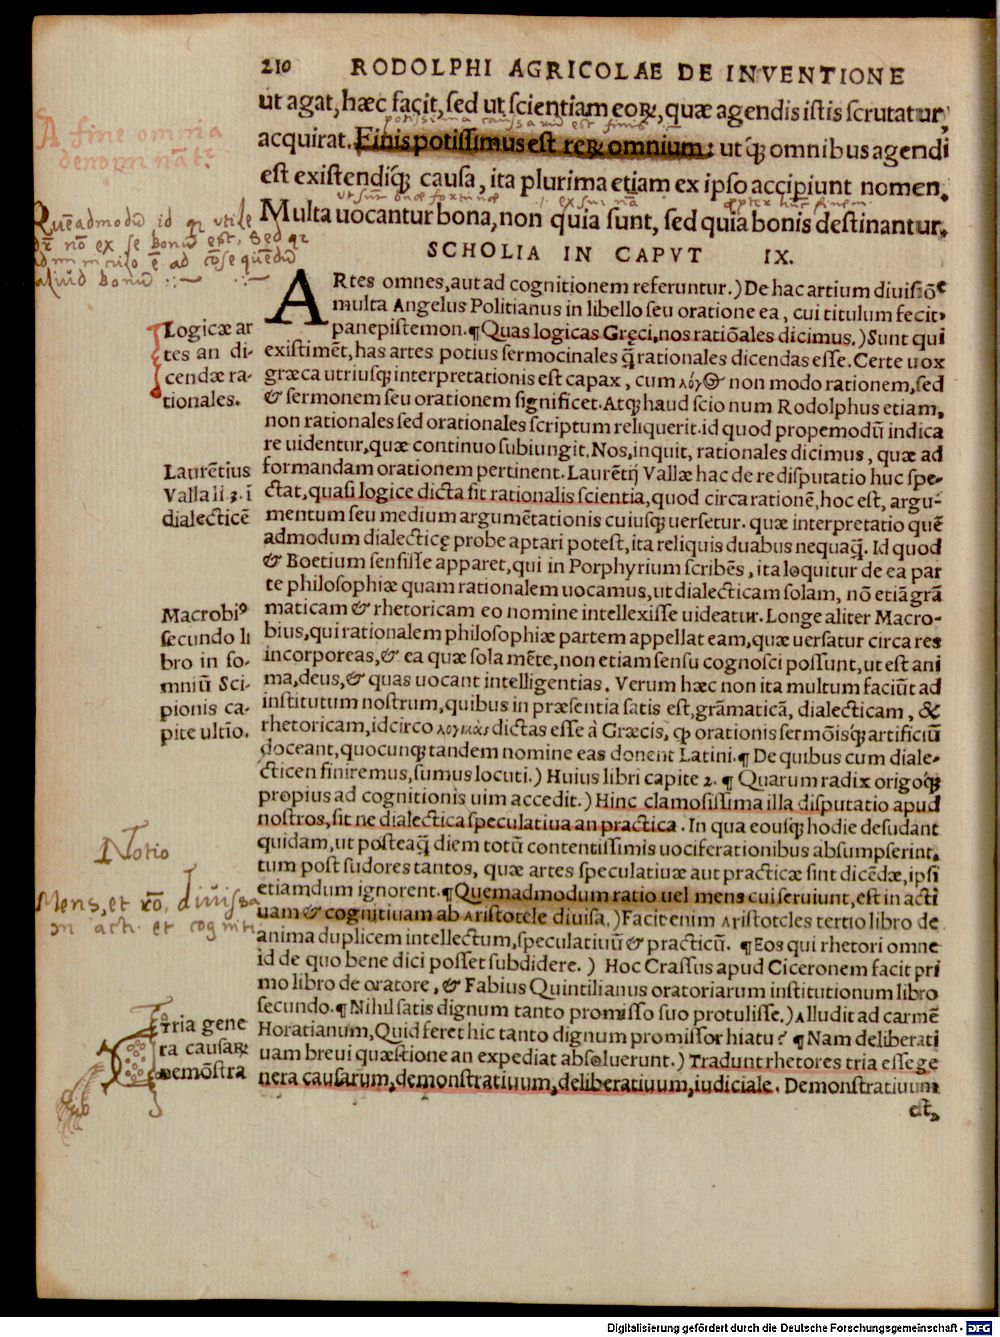 210 RODOLPHI AGRICOLAE DE INVENTIONE
ut agat, hæc facit, sed ut scientiam eoꝝ, quæ agendis istis scrutatur,
potissima caussarum est finis
acquirat. Finis potissimus est reꝝ omnium: ut q́ꝫ omnibus agendi
est existendiq́ꝫ causa, ita plurima etiam ex ipso accipiunt nomen.
Multa uocantur bona, non quia sunt, sed quia bonis destinantur.
A fine omnia
denominãt:
Quẽadmodũ id qꝫ utile
nõ ex se bonũ est, Sed
ad cõsequẽdũ
aliud bonũ
SCHOLIA IN CAPVT IX.
ARtes omnes, aut ad cognitionem referuntur.) De hac artium diuisiõe
multa Angelus Politianus in libello seu oratione ea, cui titulum fecit
panepistemon. ¶ Quas logicas Gręci, nos ratiõales dicimus.) Sunt qui
existimẽt, has artes potius sermocinales q̃ rationales dicendas esse. Certe uox
græca utriusqꝫ interpretationis est capax, cum λόγος non modo rationem, sed
& sermonem seu orationem significet. Atqꝫ haud scio num Rodolphus etiam,
non rationales sed orationales scriptum reliquerit. id quod propemodũ indica
re uidentur, quæ continuo subiungit. Nos, inquit, rationales dicimus, quæ ad
formandam orationem pertinent. Laurẽtij Vallæ hac de re disputatio huc spe-
ctat, quasi logice dicta sit rationalis scientia, quod circa rationẽ, hoc est, argu-
mentum seu medium argumẽtationis cuiusqꝫ uersetur. quæ interpretatio quẽ
admodum dialecticę probe aptari potest, ita reliquis duabus nequaq̃. Id quod
& Boetium sensisse apparet, qui in Porphyrium scribẽs, ita loquitur de ea par
te philosophiæ quam rationalem uocamus, ut dialecticam solam, nõ etiã grã
maticam & rhetoricam eo nomine intellexisse uideatur. Longe aliter Macro-
bius, qui rationalem philosophiæ partem appellat eam, quæ uersatur circa res
incorporeas, & ea quæ sola mẽte, non etiam sensu cognosci possunt, ut est ani
ma, deus, & quas uocant intelligentias. Verum hæc non ita multum faciũt ad
institutum nostrum, quibus in præsentia satis est, grãmaticã, dialecticam, &
rhetoricam, idcirco λογικὰς dictas esse à Græcis, ꝙ orationis sermõisq́ꝫ artificiũ
doceant, quocunqꝫ tandem nomine eas donent Latini. ¶ De quibus cum diale-
cticen finiremus, sumus locuti.) Huius libri capite 2. ¶ Quarum radix origoq́ꝫ
propius ad cognitionis uim accedit.) Hinc clamosissima illa disputatio apud
nostros, sit ne dialectica speculatiua an practica. In qua eousqꝫ hodie desudant
quidam, ut posteaq̃ diem totũ contentissimis uociferationibus absumpserint,
tum post sudores tantos, quæ artes speculatiuæ aut practicæ sint dicẽdæ, ipsi
etiamdum ignorent. ¶ Quemadmodum ratio uel mens cui seruiunt, est in acti
uam & cognitiuam ab Aristotele diuisa.) Facit enim Aristoteles tertio libro de
anima duplicem intellectum, speculatiuũ & practicũ. ¶ Eos qui rhetori omne
id de quo bene dici posset subdidere.) Hoc Crassus apud Ciceronem facit pri
mo libro de oratore, & Fabius Quintilianus oratoriarum institutionum libro
secundo. ¶ Nihil satis dignum tanto promisso suo protulisse.) Alludit ad carmẽ
Horatianum, Quid feret hic tanto dignum promissor hiatu? ¶ Nam deliberati
uam breui quæstione an expediat absoluerunt.) Tradunt rhetores tria esse ge
nera causarum, demonstratiuum, deliberatiuum, iudiciale. Demonstratiuum
est,
Logicæ ar
tes an di-
cendæ ra-
tionales.
Laurẽtius
Valla li 3. ĩ
dialecticẽ
Macrobiꝰ
secundo li
bro in so-
mniũ Sci-
pionis ca-
pite ultio.
Notio
Mens, et rõ, diuisa
in acti. et cogniti
Tria gene
ra causaꝝ
Demõstra
Digitalisierung gefördert durch die Deutsche Forschungsgemeinschaft - DFG